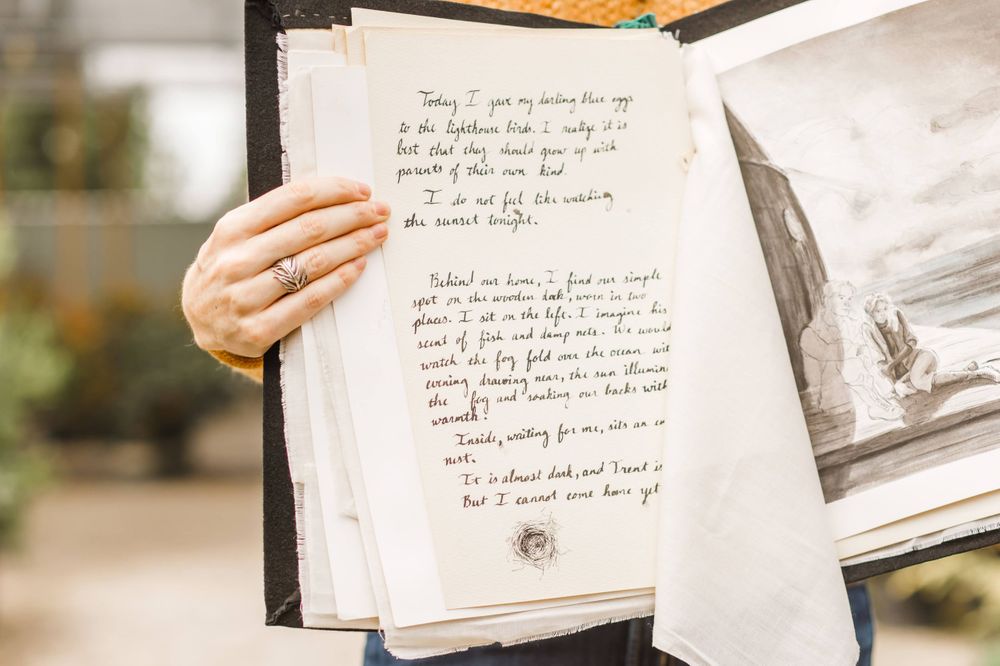 Today I gave my darling blue eggs
to the lighthouse birds. I realize it is
best that they should grow up with
parents of their own kind.
I do not feel like watching
the sunset tonight.
Behind our home, I find our simple
spot on the wooden dock, worn in two
places. I sit on the left. I imagine his
scent of fish and damp nets. We would
watch the fog fold over the ocean wit
evening drawing near, the sun illumin
the fog and soaking our backs with
warmth.
Inside, waiting for me, sits an em
nest.
It is almost dark, and Trent is
But I cannot come home yet